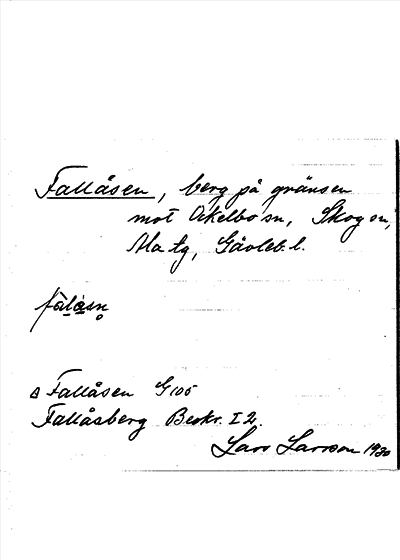 Fallåsen, berg på gränsen
mot Ockelbo sn, Skog sn,
Ala tg, Gävleb. l.
fàlàsn̥
▵ Fallåsen G 105
Fallåsberg Beskr. I 2.
Lars Larsson 1930